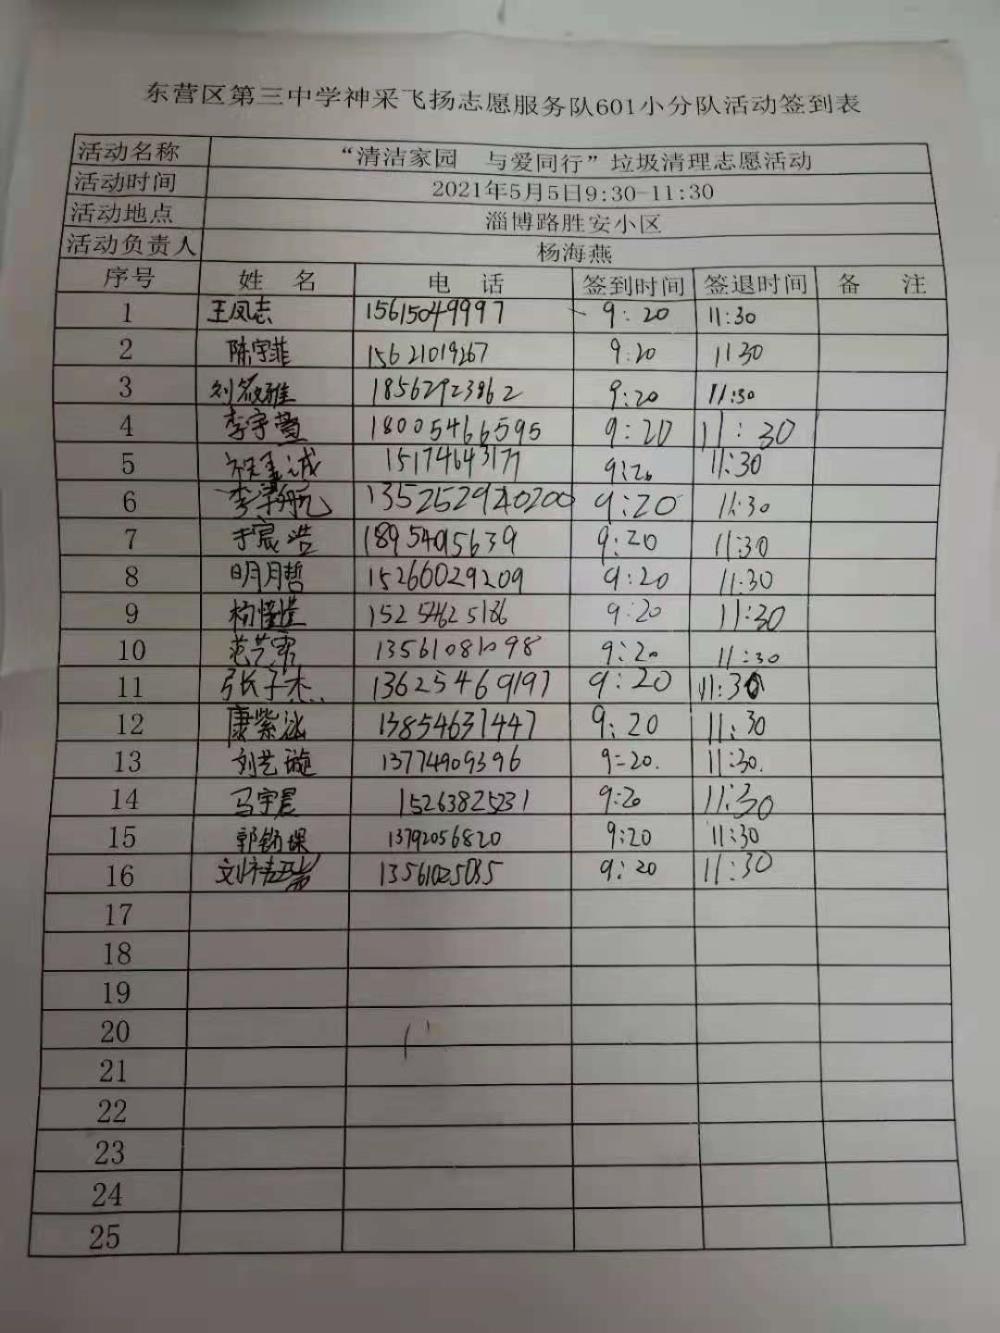 东营区第三中学神采飞扬志愿服务队601小分队活动签到表
活动名称 “清洁家园 与爱同行”垃圾清理志愿活动
活动时间 2021年5月5日9:30-11:30
活动地点 淄博路胜安小区
活动负责人 杨海燕
序号 姓 名 电 话 签到时间 签退时间 备 注
1 王凤志 15615049997 9:20 11:30
2 陈宇菲 15621019267 9:20 11 30
3 刘筱雅 18562923862 9:20 11:30
4 李宇萱 18005466595 9:20 11:30
5 诚 15174643177 9:20 11:30
6 李 航 9:20 11:30
7 于宸浩 9:20 11:30
8 明月哲 15266029209 9:20 11:30
9 杨 15254625186 9:20 11:30
10 范艺 13561081098 9:20 11:30
11 张子杰 13625469197 9:20 11:30
12 康紫冰 13854631447 9:20 11:30
13 刘艺璇 13774909396 9:20. 11:30.
14 马宇晨 15263825231 9:20 11:30
15 郭 13792056820 9:20 11:30
16 刘 13561025085 9:20 11:30
17
18
19
20
21
22
23
24
25